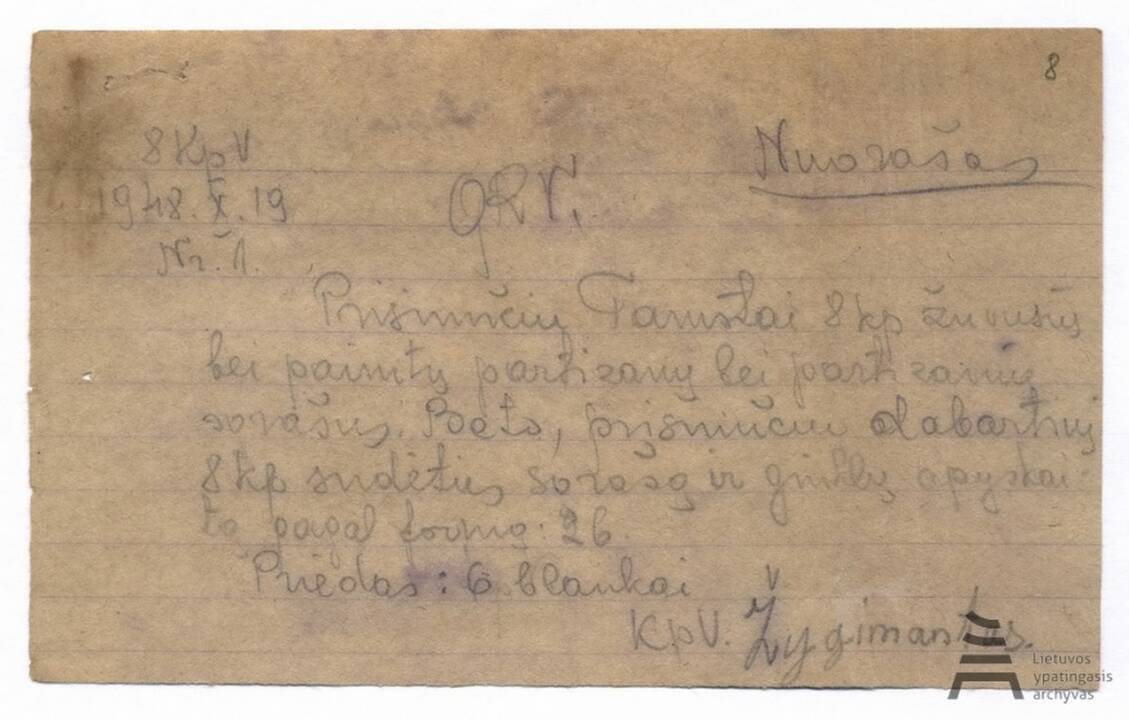 8
8 KpV
Nuorašas
1948.X.19
QRV.
Nr. 1.
Prisiunčiu Tamstai 8 kp žuvusių
bei paimtų partizanų bei partizanių
sąrašus. Be to, prisiunčiu dabartinį
8 kp sudėties sąrašą ir ginklų apyskai-
tą pagal formą: 26.
Priedas: 6 blankai
KpV. Žygimantas.
Lietuvos
ypatingasis
archyvas